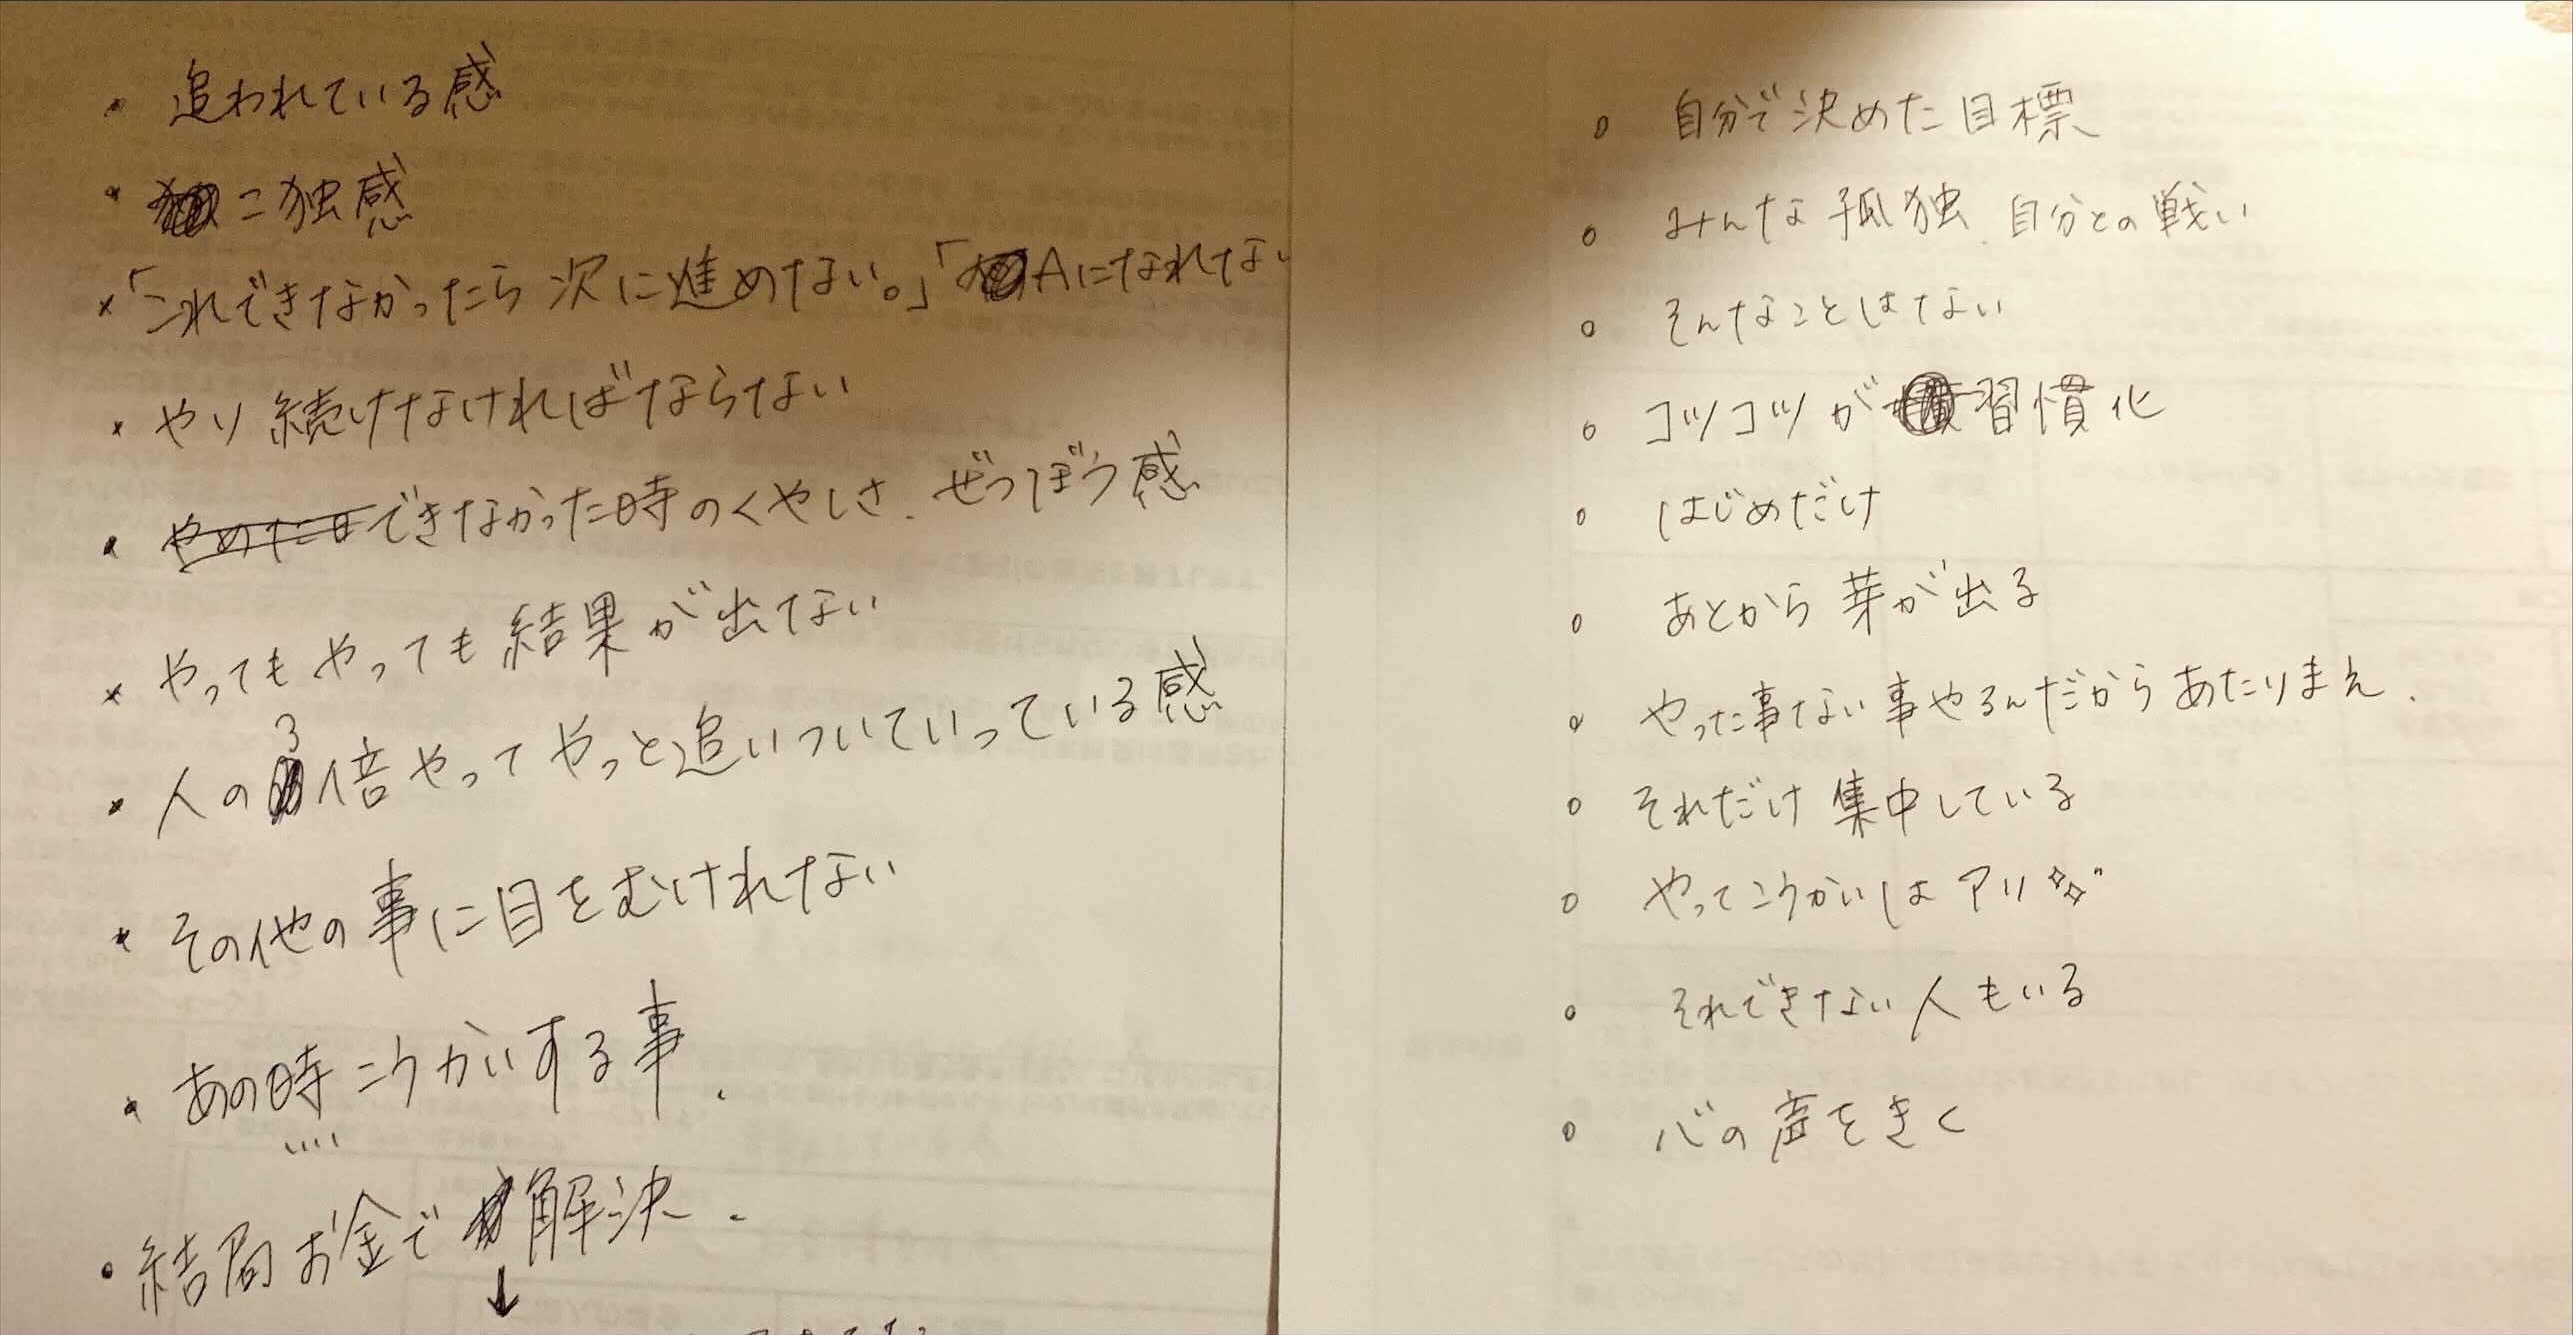 ・追われている感
・こ独感
・「これできなかったら次に進めない。」「Aになれない
・やり続けなければならない
・できなかった時のくやしさ、ぜつぼう感
・やってもやっても結果が出ない
・人の3倍やってやっと追いついていっている感
・その他の事に目をむけれない
・あの時こうかいする事、
・結局お金で解決、
↓
。自分で決めた目標
。みんな孤独、自分との戦い
。そんなことはない
。コツコツが習慣化
。はじめだけ
。あとから芽が出る
。やった事ない事やるんだからあたりまえ、
。それだけ集中している
。やってこうかいはアリ
。それできない人もいる
。心の声をきく